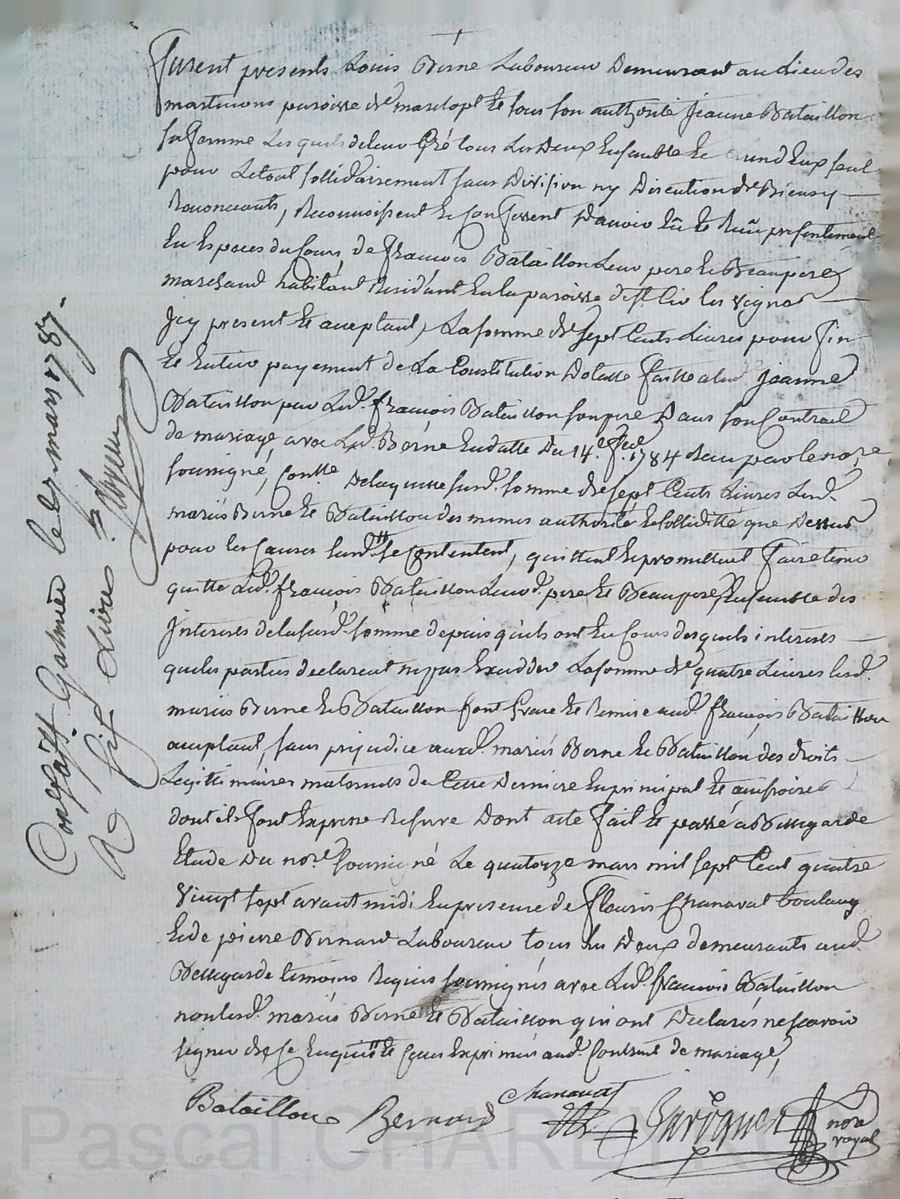 furent presents Louis Berne Laboureur Demeurant au Lieu des
martinions paroisse de marclopt et sous son authorité jeanne Bataillon
sa femme Les quels de leur Gré tous Les Deux Ensemble et Lun d'Eux seul
pour Letout sollidairement sans Division ny Discution de Biens y
Renonceants, Reconnoissent et Confessent D'avoir Eu et Reçu presentement
En Especes du Cours de francois Bataillon Leur pere et Beaupere
marchand habitant Residant En la paroisse de st Cir les vignes
jcy present et aceptant, La somme de sept Cents Livres pour fin
et Entier payement de La Constitution Dotalle faitte a lad. jeanne
Bataillon par Led. francois Bataillon son pere Dans son Contrait
de mariage avec Led. Berne En datte Du 14e. 1784 Reçu par le nore
soussigné, Contt. De laquelle susd. somme de sept Cents Livres Lesd.
mariés Berne et Bataillon des memes authorité et solliditté que Dessus
pour les Causes susd. se Contentent, quittent et promettent faire tenir
quitte Led. francois Bataillon Leurd. pere et Beaupere Ensemble des
Interets de la susd. somme depuis qu'ils ont Eu Cours des quels interets
que les parties declarent ne pas Exceder La somme de quatre Livres lesd.
mariés Berne et Bataillon font Grace et Remise aud. francois Bataillon
aceptant, sans prejudice auxd. mariés Berne et Bataillon des droits
Legittimaires maternels de Cette Derniere En principal et accessoires
dont ils font Expresse Reserve Dont acte fait et passé a Bellegarde
Etude Du nore. soussigné Le quatorze mars mil sept Cent quatre
vingt sept avant midi En presence de fleuris Chanavat boulanger
et de pierre Bernard Laboureur tous les Deux demeurants aud.
Bellegarde temoins Requis soussignés avec Led. francois Bataillon
non lesd. mariés Berne et Bataillon qui ont Declarés ne scavoir
signer de Ce Enquis et Exprimés aud. Contrait de mariage,
Bataillon Bernard Chanavat nore royal
Con st Galmier le 27 mars 1787.
R Sept Livres
Pascal